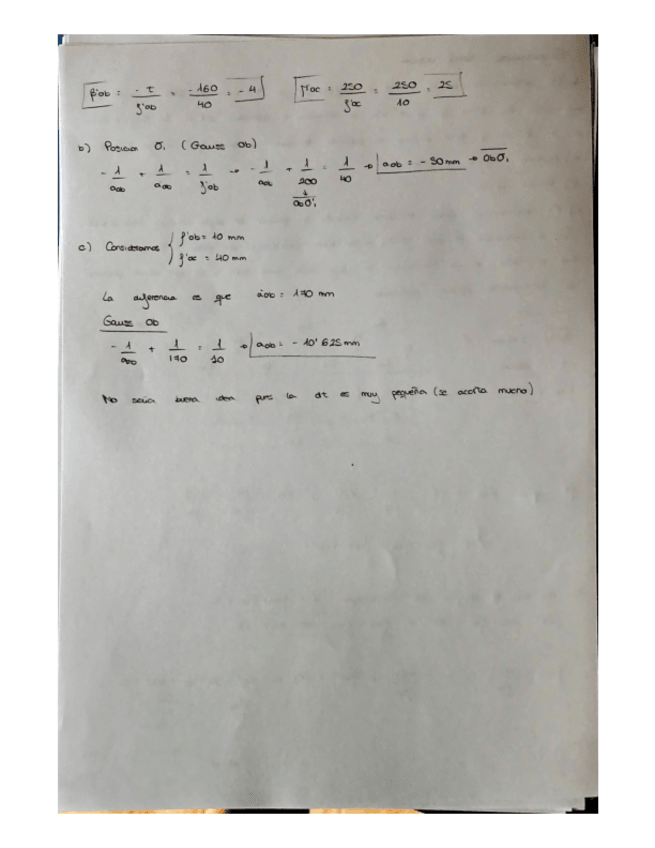 β'ob = -t/f'ob = -160/40 = -4    Γ'oc = 250/f'oc = 250/10 = 25
b) Posición O'₁ (Gauss Ob)
-1/aob + 1/a'ob = 1/f'ob → -1/aob + 1/200 = 1/40 → aob = -50mm → ObO₁
↓
obO'₁
c) Consideramos { f'ob = 10 mm
f'oc = 40 mm
La diferencia es que a'ob = 170 mm
Gauss Ob
-1/aob + 1/170 = 1/10 → aob = -10'625mm
No sería buena idea pues la dt es muy pequeña (se acorta mucho)